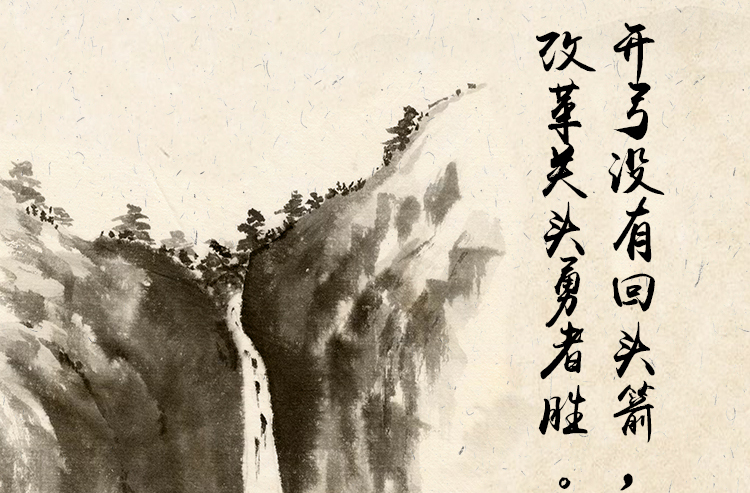 开弓没有回头箭，
改革关头勇者胜。